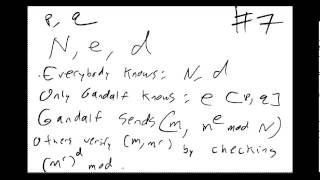 p, q #7
N, e, d
. Everybody knows: N, d
Only Gandalf knows: e [p, q]
Gandalf sends (m, m^e mod N)
Others verify (m, m') by checking
(m')^d mod